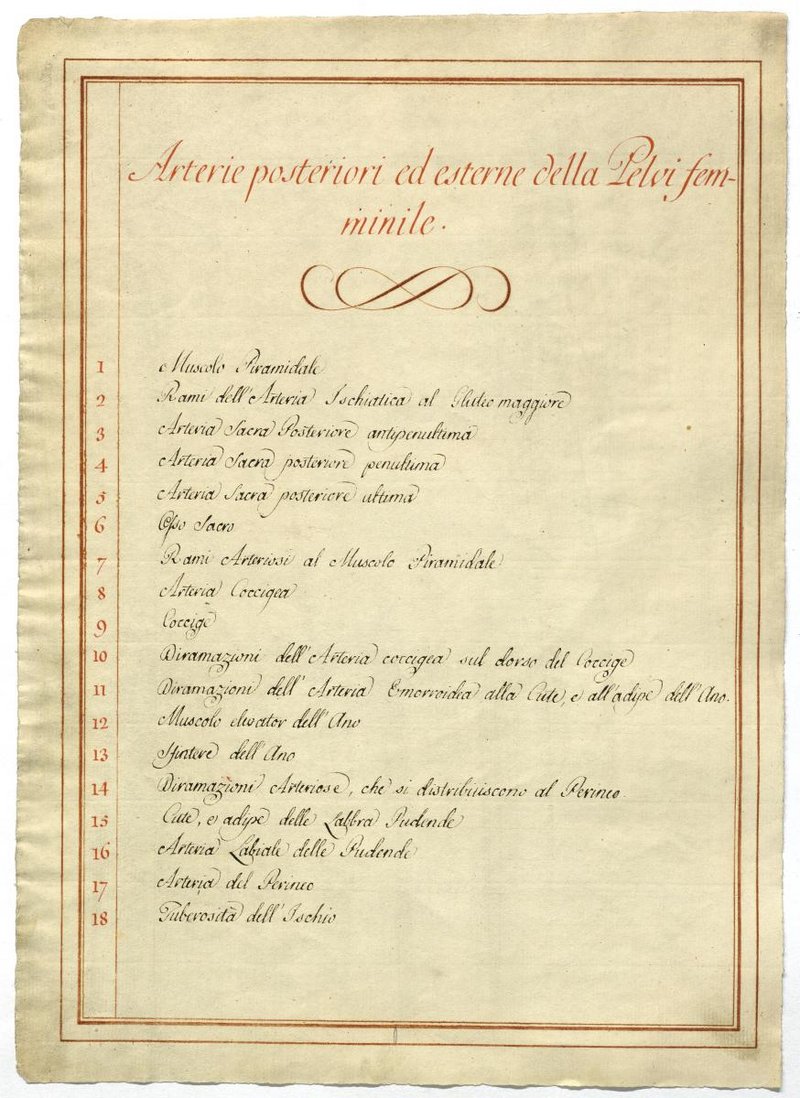 Arterie posteriori ed esterne della Pelvi fem-
minile.
1 Muscolo Piramidale
2 Rami dell'Arteria Ischiatica al Gluteo maggiore
3 Arteria Sacra Posteriore antipenultima
4 Arteria Sacra posteriore penultima
5 Arteria Sacra posteriore ultima
6 Osso Sacro
7 Rami Arteriosi al Muscolo Piramidale
8 Arteria Coccigea
9 Coccige
10 Diramazioni dell'Arteria coccigea sul dorso del Coccige
11 Diramazioni dell'Arteria Emorroidea alla Cute, e all'adipe dell'Ano.
12 Muscolo elevator dell'Ano
13 Sfintere dell'Ano
14 Diramazioni Arteriose, che si distribuiscono al Perineo.
15 Cute, e adipe delle Labbra Pudende
16 Arteria Labiale delle Pudende
17 Arteria del Perineo
18 Tuberosità dell'Ischio